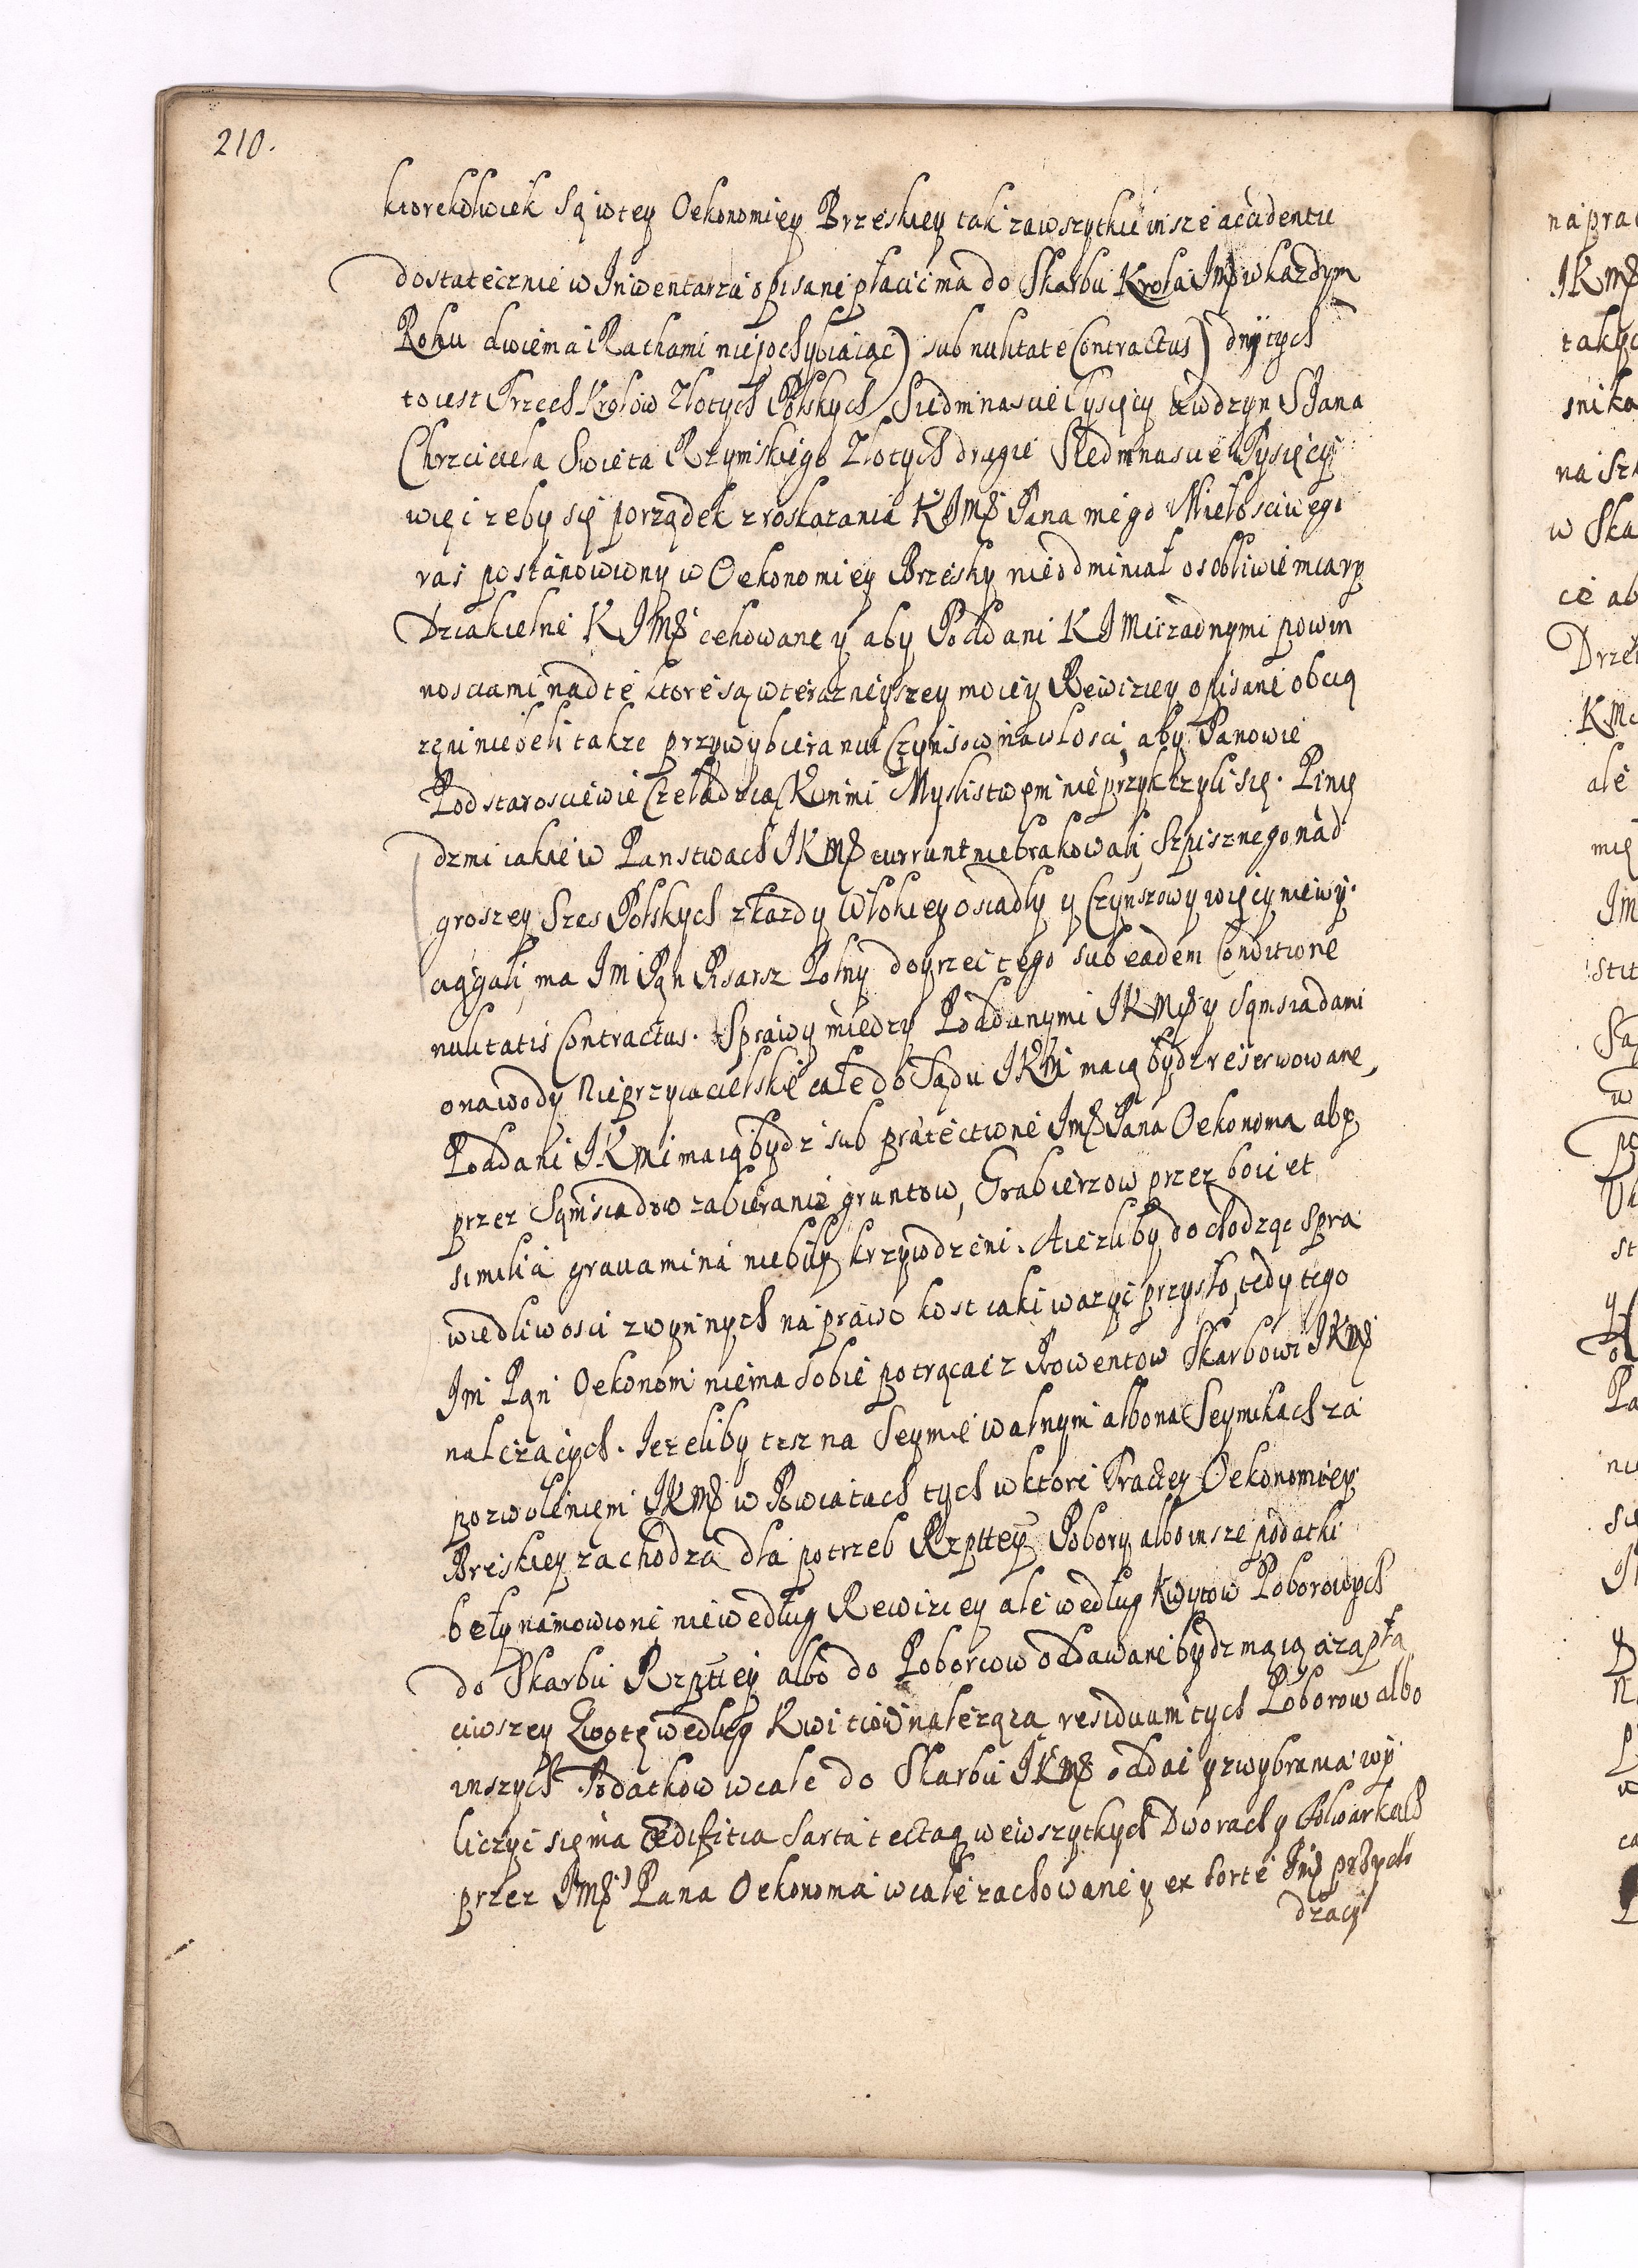 210.
ktorekolwiek są w tey Oekonomiey Brzeskiey tak zawszytkie insze accidentie
dostatecznie w Inwentarzu opisane płacić ma do Skarbu Krola JMś w kazdym
Roku dwiema Rathami niepochybiaiąc) sub nullitate Contractus) dny tych
to iest Trzech Krolow Złotych Polskych Siedmnascie Tysięcy a w dzyn S Jana
Chrzciciela Swieta Rzymskiego Złotych drugie Siedmnascie Tysięcy
więc zeby się porządek z roskazania KJMś Pana mego Miełosciwego
ras postanowiony w Oekonomiey Brzesky nieodmieniał osobliwie miary
Dziakielne KJMś cehowane y aby Poddani KJMci zadnymi powin
nosciami nad te ktore są w terazniejszey moiey Rewiziey opisane obcią
zeni niebeli takze przy wybieraniu Czynszow na włosci, aby Panowie
Podstarosciewie Czeladzią Konmi Myslistwem nie przykrzyli się. Pinię
dzmi iakie w Panstwach JKMś currunt niebrakowali, Szpisznego nad
groszey Szes Polskych z kazdy Włokiey osiadły y Czynszowy więcy niewy
ciągali, ma Jm Pąn Pisarz Polny doyrzec tego sub eadem Conditione
nulitatis Contractus. Sprawy miedzy Poddanymi JKMś y Sąmsiadami
o nawody Nieprzyiacielskie całe do Sądu JKM maią bydz reserwowane,
Poddani JKMi maią bydz sub protectione Jmś Pana Oekonoma aby
przez Sąmsiadow zabieranie gruntow, Grabierzow przez boie et
similia grauamina niebily krzywdzeni. A ieżliby dochodząc spra
wiedliwosci z wyninych na prawo koszt iaki wazyc przyszło, tedy tego
Jm Pąn Oekonom niema sobie potrącac z Prowentow Skarbowi JKMś
nalezących. Jezeliby tesz na Seymie walnym albo na Seymikach za
pozwoleniem JKMś w Powiatach tych w ktore Tracty Oekonomiey
Breskiey zachodza dla potrzeb Rzpttey Pobory albo insze podatki
beły namowione nie według Rewiziey ale według Kwytow Poborowych
do Skarbu Rzpttey albo do Poborcow oddawane bydz maią a zapła
ciwszey Kwotę według Kwitow nalezącą residuum tych Poborow albo
inszych Podatkow wcale do Skarbu JKMś oddac y z wybrania wy
liczyc się ma Ædificia sarta tecta we wszytkych Dworach y Folwarkach
przez Jmś Pana Oekonoma wcale zachowane y ex sorte Jmś przycho
dzący